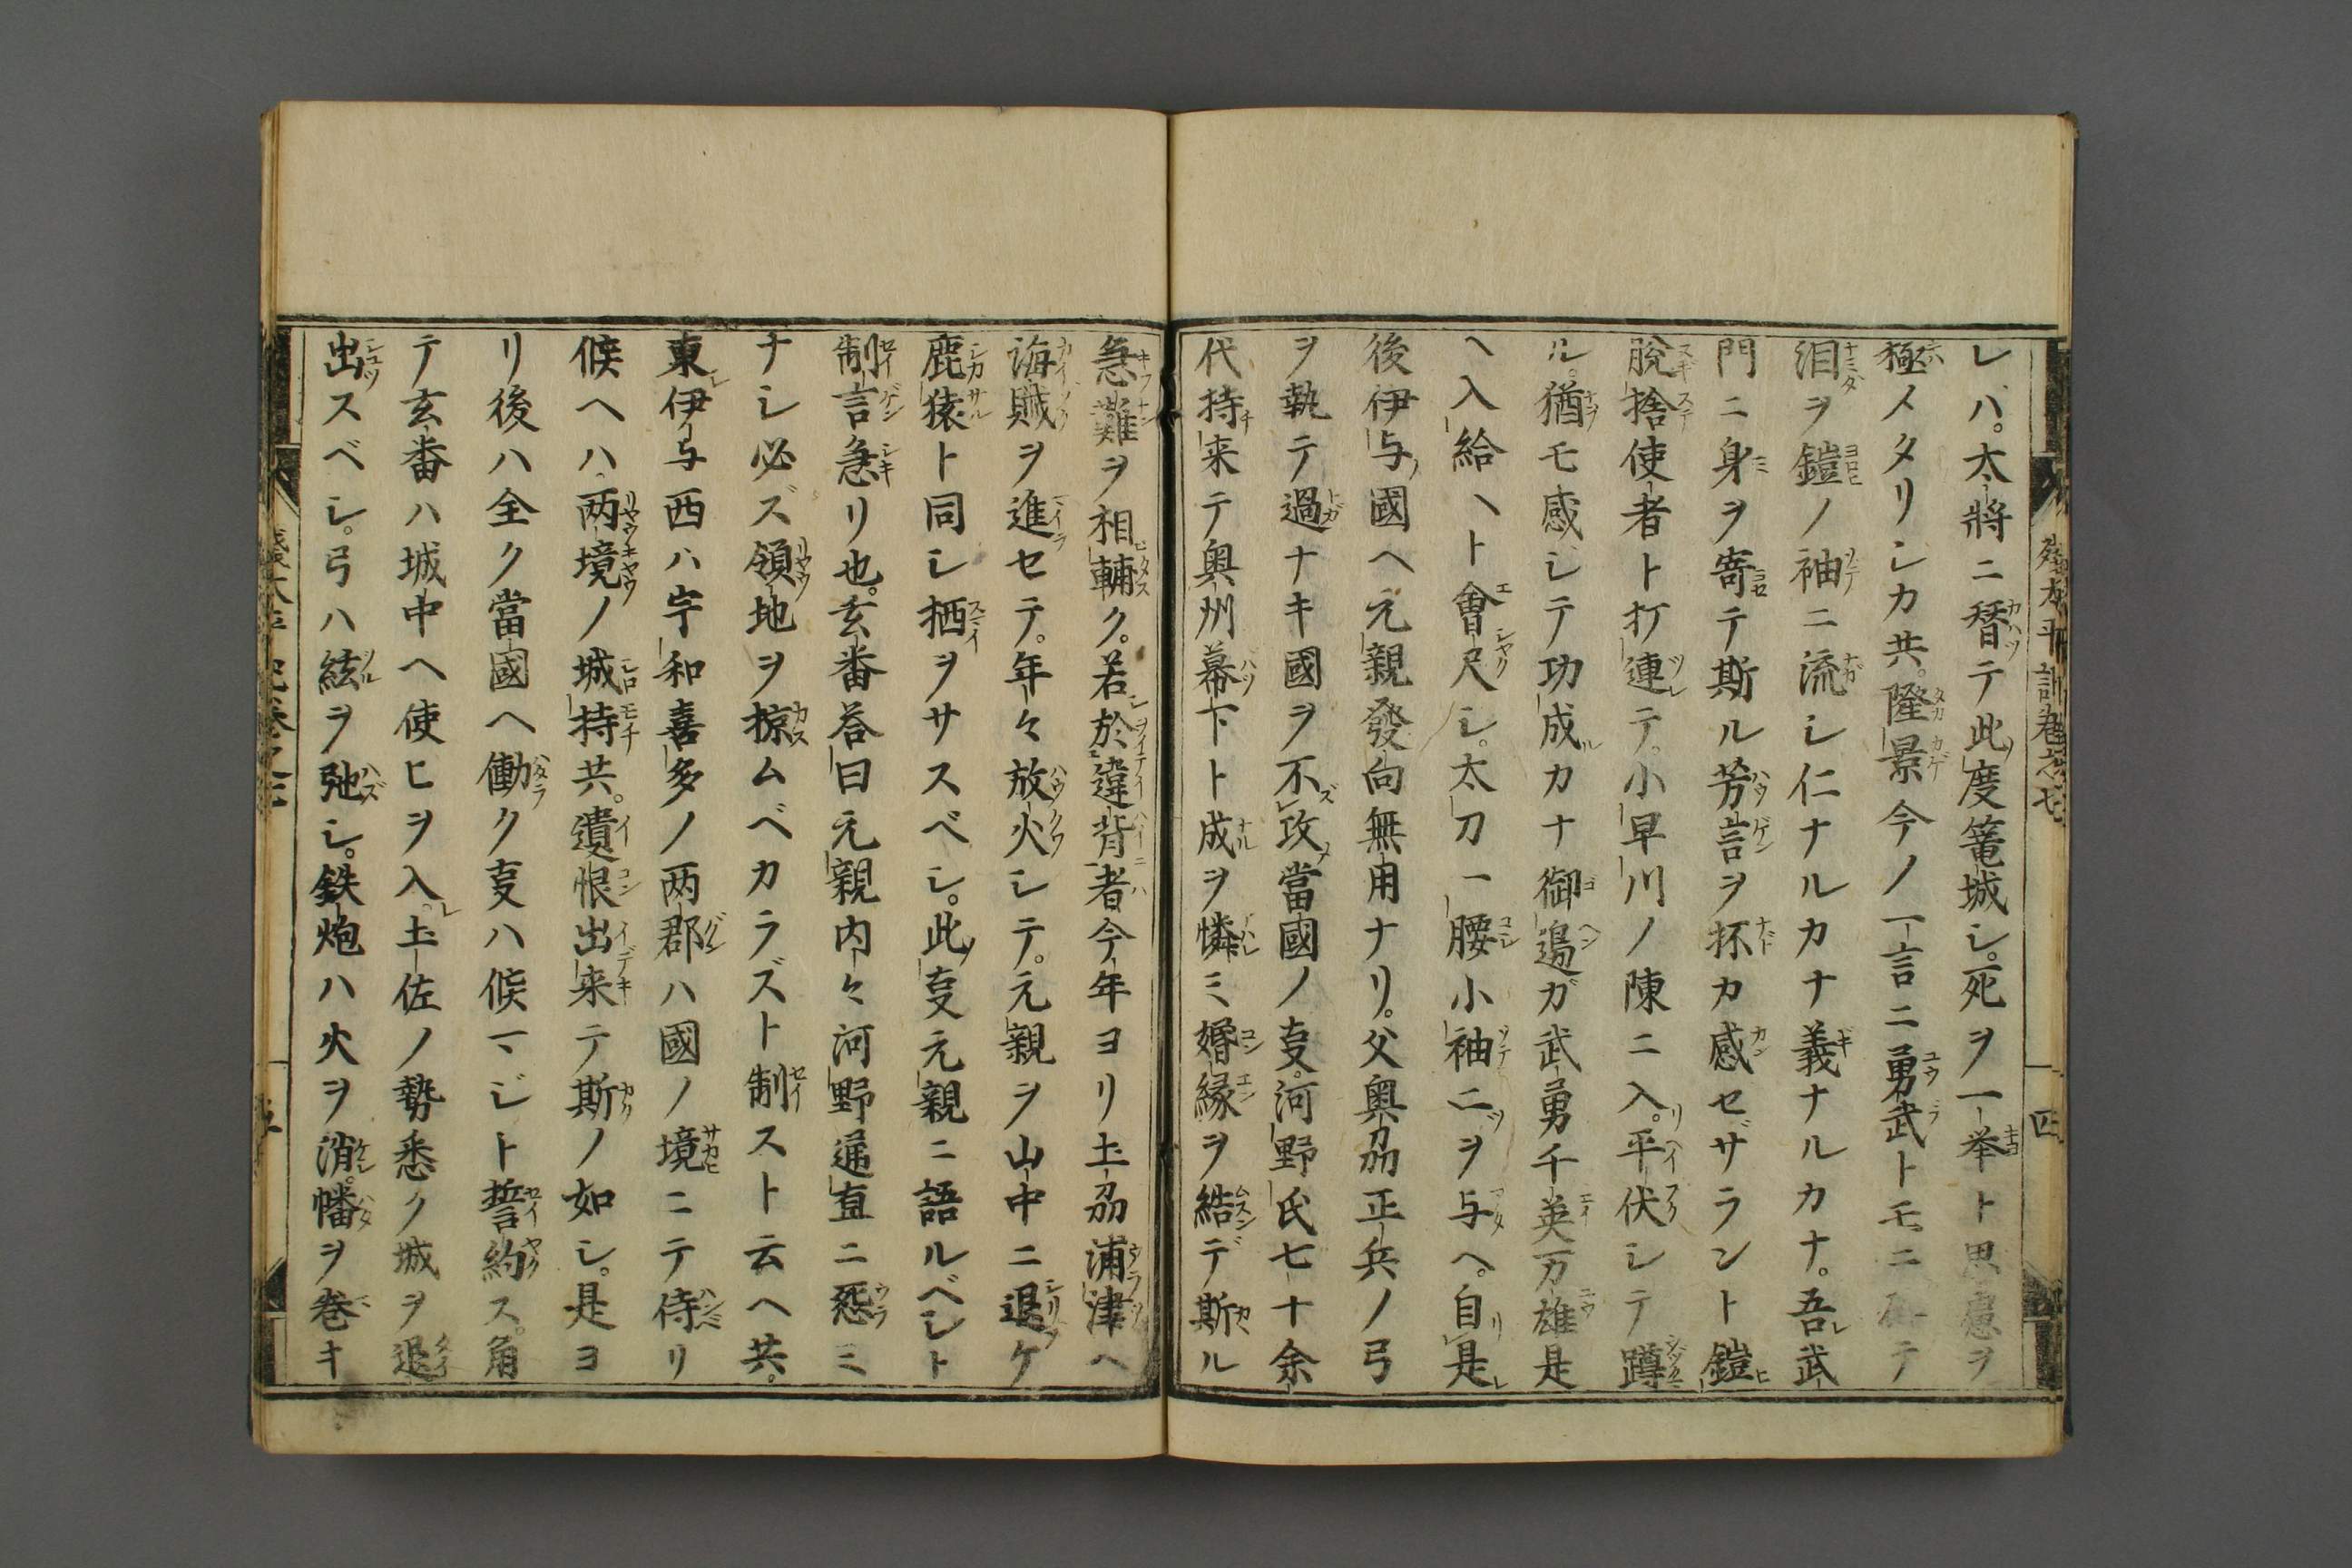 レバ。太將ニ替テ此度篭城シ。死ヲ一挙ト思慮ヲ
極メタリシカ共。隆景今ノ一言ニ勇武トモニ テ
泪ヲ鎧ノ袖ニ流シ仁ナルカナ義ナルカナ。吾武
門ニ身ヲ寄テ斯ル芳言ヲ抔カ感セザラント鎧
脱捨使者ト打連テ。小早川ノ陳ニ入。平伏シテ蹲
ル。猶モ感ジテ功成カナ御邉ガ武勇千英万雄是
ヘ入給ヘト會尺シ。太刀一腰小袖二ヲ与ヘ。自是
後伊与國ヘ元親發向無用ナリ。父奥刕正兵ノ弓
ヲ執テ過ナキ國ヲ不攻當國ノ𫝕。河野氏七十余
代持来テ奥州幕下ト成ヲ憐ミ婚縁ヲ結デ斯ル
急難ヲ相輔ク。若於違背者今年ヨリ土刕浦津ヘ
海賊ヲ進セテ。年々放火シテ。元親ヲ山中ニ退ケ
鹿猿ト同シ栖ヲサスベシ。此𫝕元親ニ語ルベシト
制言急リ也。玄番答曰元親内々河野通直ニ怨ミ
ナシ必ズ領地ヲ掠ムベカラズト制スト云ヘ共。
東伊与西ハ宇和喜多ノ两郡ハ國ノ境ニテ侍リ
候ヘハ两境ノ城持共。遺恨出来テ斯ノ如シ。是ヨ
リ後ハ全ク當國ヘ働ク𫝕ハ候マジト誓約ス。角
テ玄番ハ城中ヘ使ヒヲ入。土佐ノ勢悉ク城ヲ退
出スベシ。弓ハ絃ヲ弛シ。鉄炮ハ火ヲ消。幡ヲ巻キ